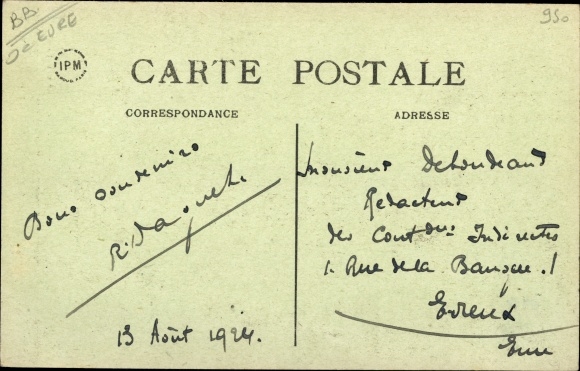 BB.
Dc EURE
950
IPM
CARTE POSTALE
CORRESPONDANCE
ADRESSE
Bons souvenirs
13 Août 1924.
Monsieur
Rédacteur
des Cont. Indirectes
1. Rue de la Banque. 1
Evreux
Eure